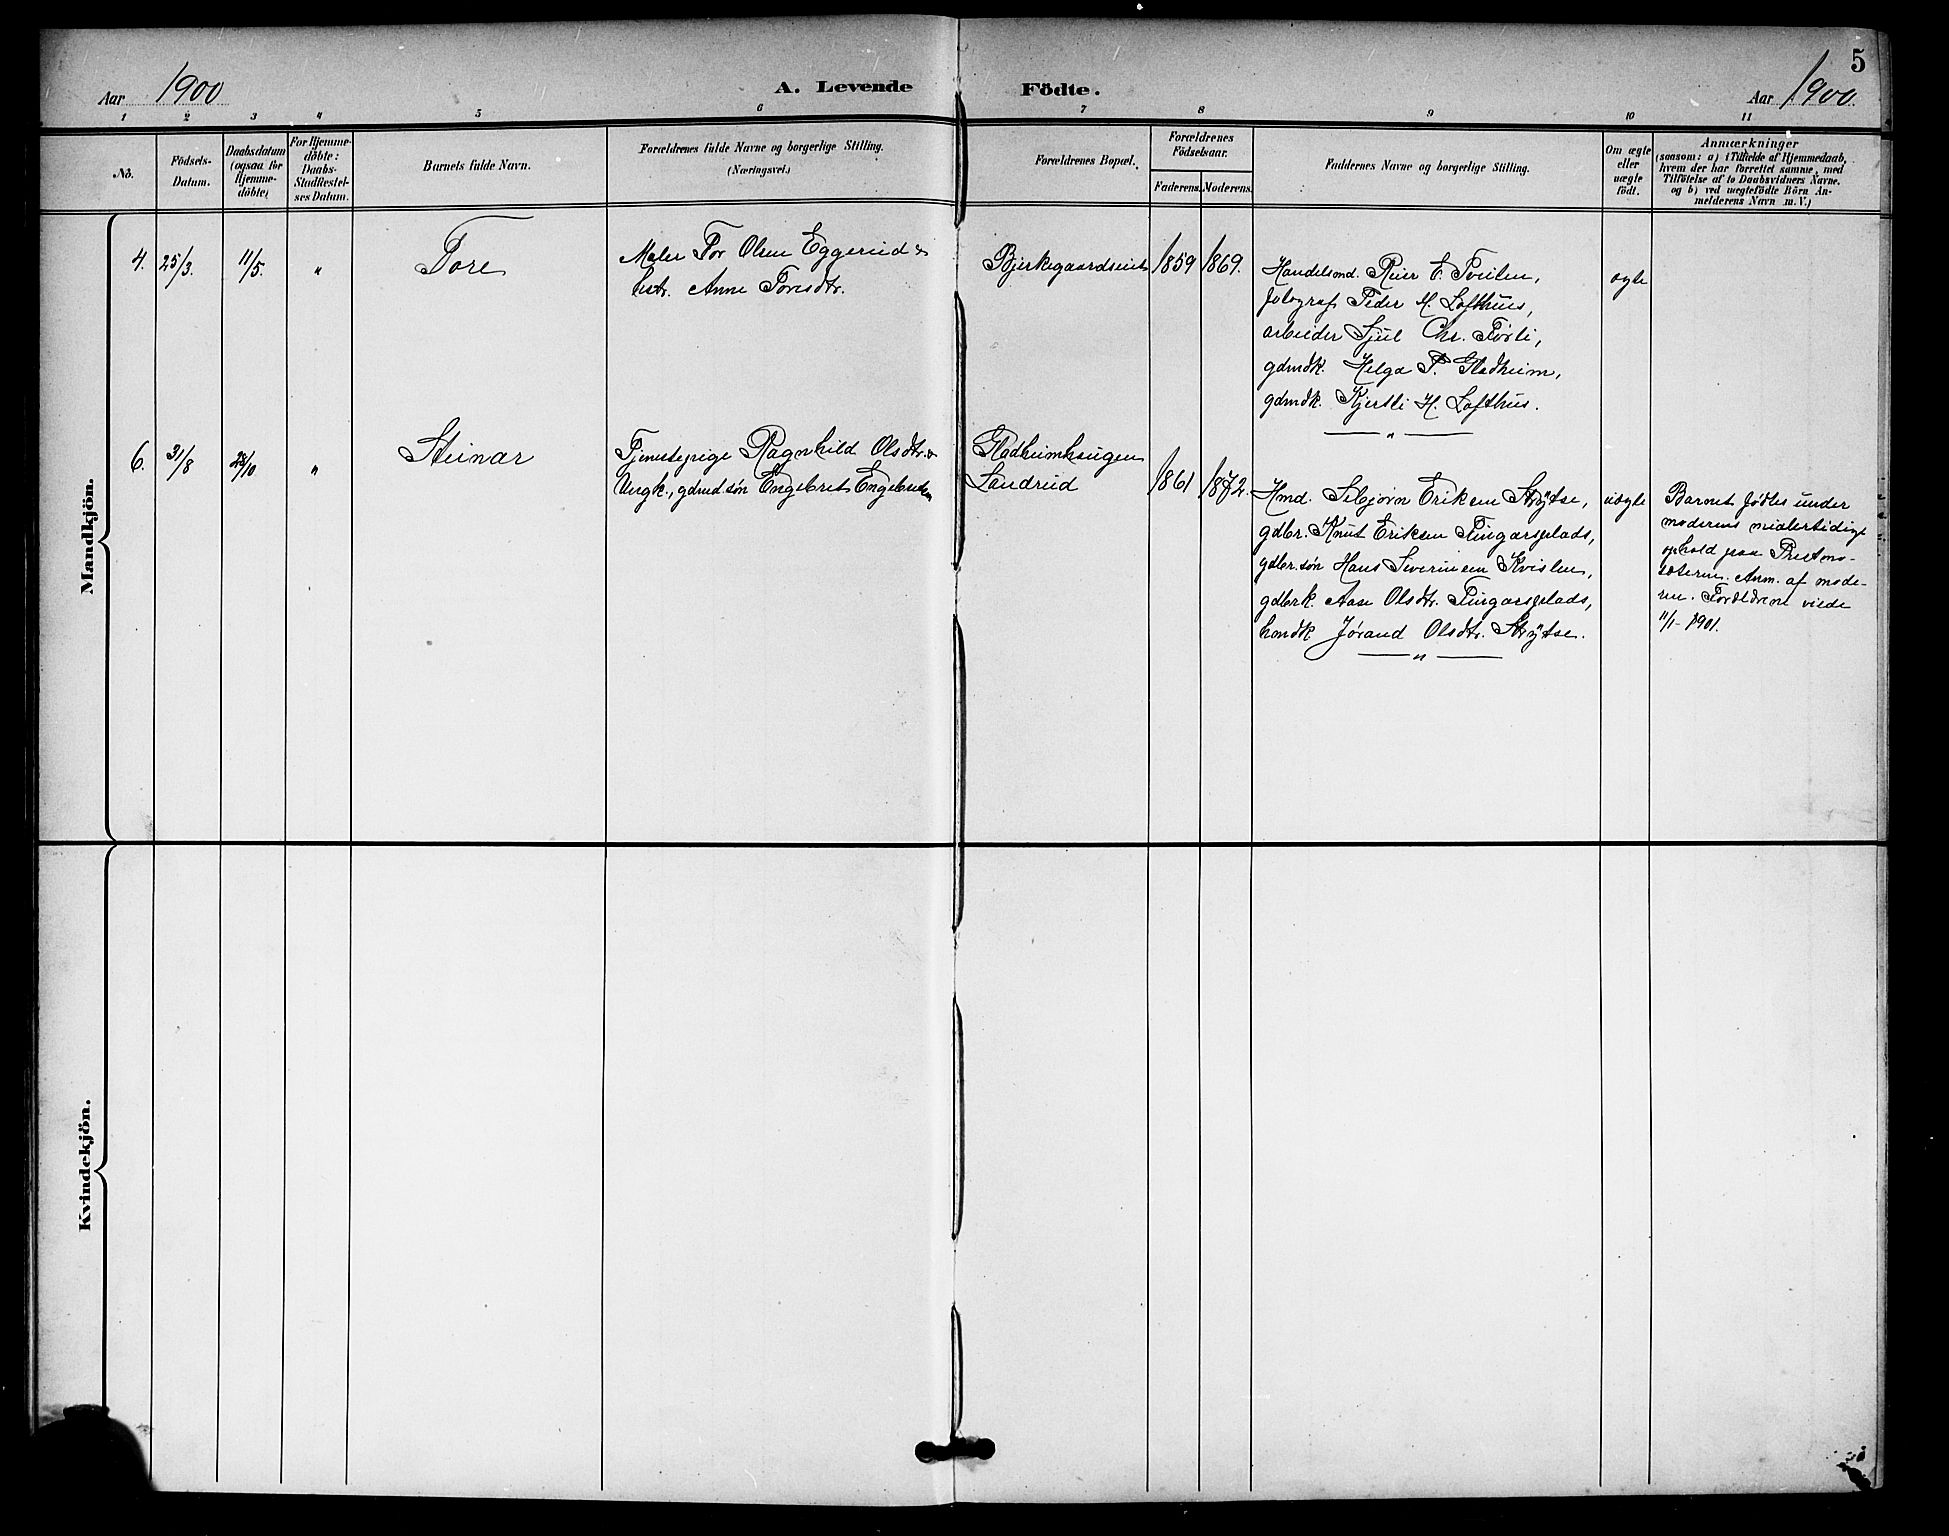 5
Aar 1900
A. Levende Födte.
Aar 1900.
1 2 3 4 5 6 7 8 9 10 11
No.
Födsels-
Datum.
Daabsdatum
(ogsaa for
Hjemme-
döbte)
For Hjemme-
döbte:
Daabs-
Stadfæstel-
ses Datum.
Barnets fulde Navn.
Forældrenes fulde Navne og borgerlige Stilling.
(Næringsvei.)
Forældrenes Bopæl.
Forældrenes
Födselsaar.
Faderens. Moderens.
Faddernes Navne og borgerlige Stilling.
Om ægte
eller
uægte
födt.
Anmærkninger
(saasom: a) i Tilfælde af Hjemmedaab,
hvem der har forrettet samme, med
Tilföielse af to Daabsvidners Navne.
og b) ved uægtefödte Börn An-
melderens Navn m. V.)
Mandkjön.
4. 25/3. 11/5. " Tore
Maler Tor Olsen Eggerud &
hstr. Anne Toresdtr.
Bjerkegaardseiet 1859 1869.
Handelsmd. Reier E. Tveiten,
fotograf Peder H. Lofthus,
arbeider Sjul Chr. Førli,
gdmdk. Helga P. Gladheim,
gdmdk. Kjersti H. Lofthus.
— " —
ægte
6. 31/8 28/10 " Steinar
Tjenestepige Ragnhild Olsdtr. &
Ungk., gdmd.søn Engebret Engebretsen
Gladheimhaugen
Landrud
1861 1872.
Hmd. Sebjørn Eriksen Strytse,
gdbr. Knut Eriksen Tingarsplads,
gdbr.søn Hans Severinsen Kvislen,
gdbrk. Aase Olsdtr. Tingarsplads,
hmdk. Jørand Olsdtr. Strytse.
— " —
uægte
Barnet fødtes under
moderens midlertidige
ophold paa Prestmo-
sæteren. Anm. af mode-
ren. Forældrene viede
11/1-1901.
Kvindekjön.